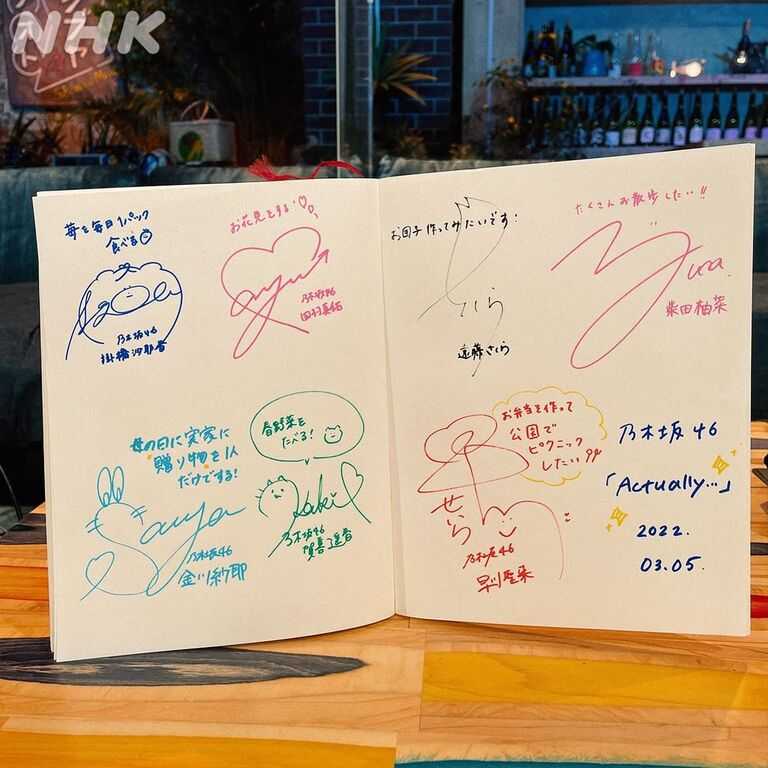 NHK
苺を毎日1パック
食べる
乃木坂46
掛橋沙耶香
お花見をする
mayu
乃木坂46
田村真佑
母の日に実家に
贈り物を1人
だけでする!
Saya
乃木坂46
金川紗耶
春野菜を
たべる!
Kaki
乃木坂46
賀喜遥香
お団子作ってみたいです!
さくら
遠藤さくら
たくさんお散歩したい!!
yuna.
柴田柚菜
お弁当を作って
公園で
ピクニック
したい
せいら
乃木坂46
早川聖来
乃木坂46
「Actually...」
2022.
03.05.